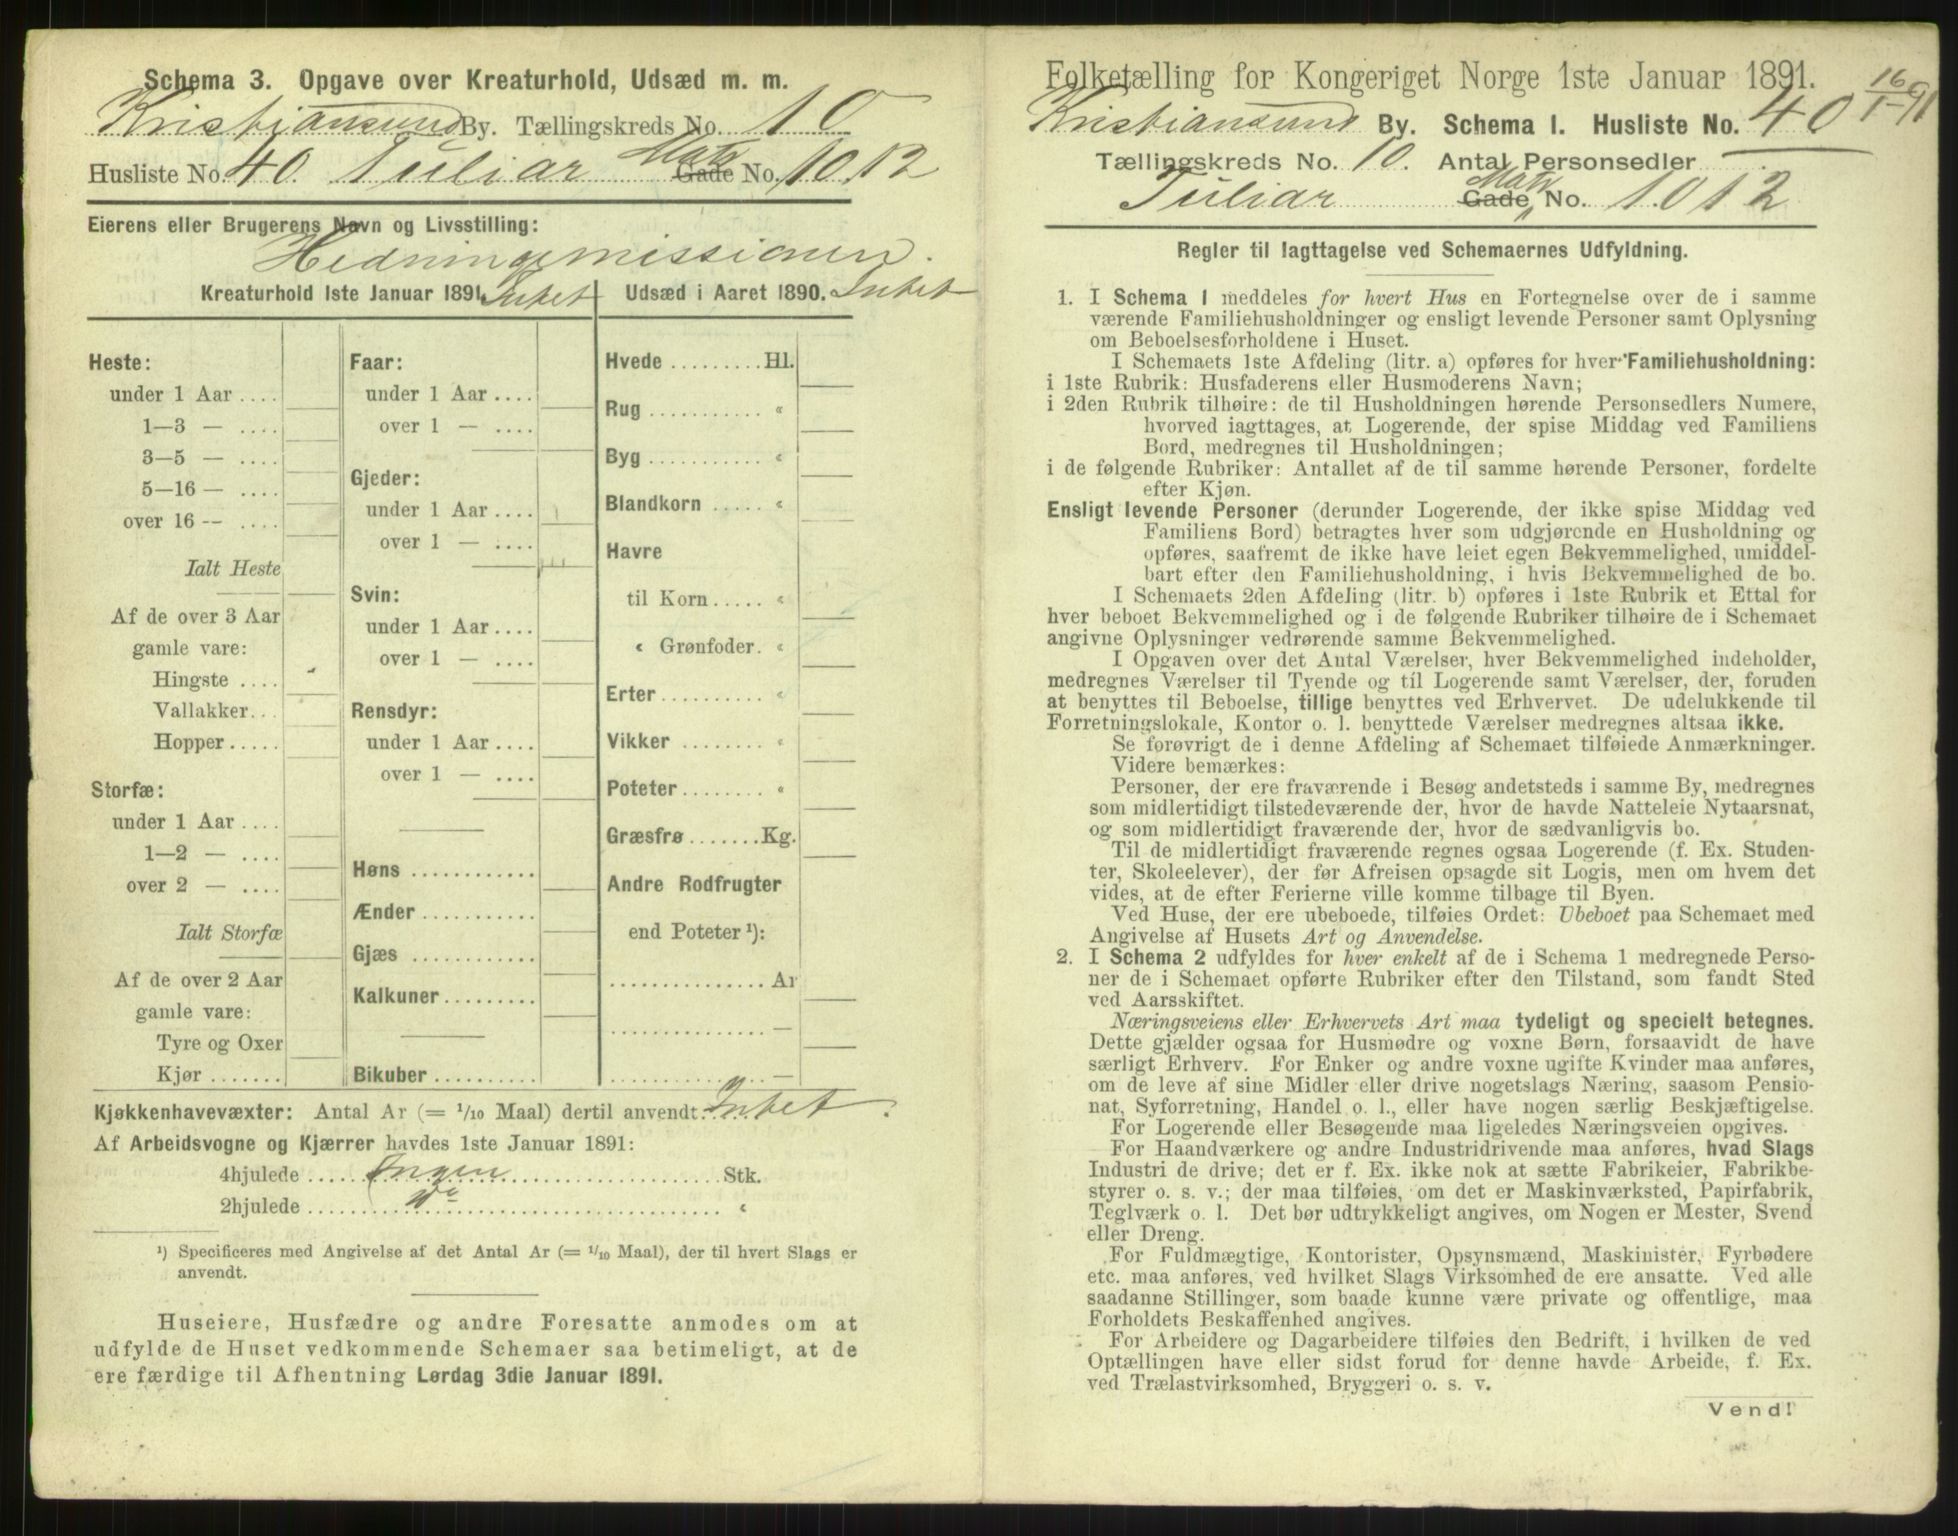 Schema 3. Opgave over Kreaturhold, Udsæd m. m.
Kristiansund By. Tællingskreds No. 10
Husliste No. 40 Tuliar Matr Gade No. 1012
Eierens eller Brugerens Navn og Livsstilling:
Hedningemissionen.
Kreaturhold 1ste Januar 1891. Intet
Udsæd i Aaret 1890. Intet
Heste:
under 1 Aar ....
1—3 — ....
3—5 — ....
5—16 — ....
over 16 -- ....
Ialt Heste
Af de over 3 Aar
gamle vare:
Hingste ....
Vallakker...
Hopper.....
Storfæ:
under 1 Aar ....
1—2 — ....
over 2 — ....
Ialt Storfæ
Af de over 2 Aar
gamle vare:
Tyre og Oxer
Kjør .......
Faar:
under 1 Aar ....
over 1 — ....
Gjeder:
under 1 Aar ....
over 1 — ....
Svin:
under 1 Aar ....
over 1 — ....
Rensdyr:
under 1 Aar ....
over 1 — ....
Høns ............
Ænder ...........
Gjæs ............
Kalkuner .........
Bikuber ..........
Hvede ......... Hl.
Rug ........... «
Byg ........... «
Blandkorn ..... «
Havre
til Korn..... «
« Grønfoder. «
Erter .......... «
Vikker ........ «
Poteter ........ «
Græsfrø ....... Kg.
Andre Rodfrugter
end Poteter ¹):
............... Ar
............... —
............... —
Kjøkkenhavevæxter: Antal Ar (= 1/10 Maal) dertil anvendt. Intet.
Af Arbeidsvogne og Kjærrer havdes 1ste Januar 1891:
4hjulede .... Ingen .... Stk.
2hjulede .... do .... «
¹) Specificeres med Angivelse af det Antal Ar (= 1/10 Maal), der til hvert Slags er
anvendt.
Huseiere, Husfædre og andre Foresatte anmodes om at
udfylde de Huset vedkommende Schemaer saa betimeligt, at de
ere færdige til Afhentning Lørdag 3die Januar 1891.
Folketælling for Kongeriget Norge 1ste Januar 1891. 16/1-91
Kristiansund By. Schema 1. Husliste No. 40
Tællingskreds No. 10. Antal Personsedler
Tuliar Matr Gade „ No. 1012
Regler til Iagttagelse ved Schemaernes Udfyldning.
1. I Schema 1 meddeles for hvert Hus en Fortegnelse over de i samme
værende Familiehusholdninger og ensligt levende Personer samt Oplysning
om Beboelsesforholdene i Huset.
I Schemaets 1ste Afdeling (litr. a) opføres for hver Familiehusholdning:
i 1ste Rubrik: Husfaderens eller Husmoderens Navn;
i 2den Rubrik tilhøire: de til Husholdningen hørende Personsedlers Numere,
hvorved iagttages, at Logerende, der spise Middag ved Familiens
Bord, medregnes til Husholdningen;
i de følgende Rubriker: Antallet af de til samme hørende Personer, fordelte
efter Kjøn.
Ensligt levende Personer (derunder Logerende, der ikke spise Middag ved
Familiens Bord) betragtes hver som udgjørende en Husholdning og
opføres, saafremt de ikke have leiet egen Bekvemmelighed, umiddel-
bart efter den Familiehusholdning, i hvis Bekvemmelighed de bo.
I Schemaets 2den Afdeling (litr. b) opføres i 1ste Rubrik et Ettal for
hver beboet Bekvemmelighed og i de følgende Rubriker tilhøire de i Schemaet
angivne Oplysninger vedrørende samme Bekvemmelighed.
I Opgaven over det Antal Værelser, hver Bekvemmelighed indeholder,
medregnes Værelser til Tyende og til Logerende samt Værelser, der, foruden
at benyttes til Beboelse, tillige benyttes ved Erhvervet. De udelukkende til
Forretningslokale, Kontor o. l. benyttede Værelser medregnes altsaa ikke.
Se forøvrigt de i denne Afdeling af Schemaet tilføiede Anmærkninger.
Videre bemærkes:
Personer, der ere fraværende i Besøg andetsteds i samme By, medregnes
som midlertidigt tilstedeværende der, hvor de havde Natteleie Nytaarsnat,
og som midlertidigt fraværende der, hvor de sædvanligvis bo.
Til de midlertidigt fraværende regnes ogsaa Logerende (f. Ex. Studen-
ter, Skoleelever), der før Afreisen opsagde sit Logis, men om hvem det
vides, at de efter Ferierne ville komme tilbage til Byen.
Ved Huse, der ere ubeboede, tilføies Ordet: Ubeboet paa Schemaet med
Angivelse af Husets Art og Anvendelse.
2. I Schema 2 udfyldes for hver enkelt af de i Schema 1 medregnede Perso-
ner de i Schemaet opførte Rubriker efter den Tilstand, som fandt Sted
ved Aarsskiftet.
Næringsveiens eller Erhvervets Art maa tydeligt og specielt betegnes.
Dette gjælder ogsaa for Husmødre og voxne Børn, forsaavidt de have
særligt Erhverv. For Enker og andre voxne ugifte Kvinder maa anføres,
om de leve af sine Midler eller drive nogetslags Næring, saasom Pensio-
nat, Syforretning, Handel o. l., eller have nogen særlig Beskjæftigelse.
For Logerende eller Besøgende maa ligeledes Næringsveien opgives.
For Haandværkere og andre Industridrivende maa anføres, hvad Slags
Industri de drive; det er f. Ex. ikke nok at sætte Fabrikeier, Fabrikbe-
styrer o. s. v.; der maa tilføies, om det er Maskinværksted, Papirfabrik,
Teglværk o. l. Det bør udtrykkeligt angives, om Nogen er Mester, Svend
eller Dreng.
For Fuldmægtige, Kontorister, Opsynsmænd, Maskinister, Fyrbødere
etc. maa anføres, ved hvilket Slags Virksomhed de ere ansatte. Ved alle
saadanne Stillinger, som baade kunne være private og offentlige, maa
Forholdets Beskaffenhed angives.
For Arbeidere og Dagarbeidere tilføies den Bedrift, i hvilken de ved
Optællingen have eller sidst forud for denne havde Arbeide, f. Ex.
ved Trælastvirksomhed, Bryggeri o. s. v.
Vend!